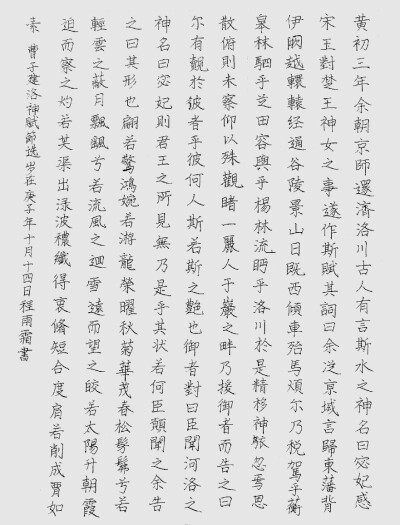 黄初三年余朝京師還濟洛川古人有言斯水之神名曰宓妃感
宋玉對楚王神女之事遂作斯賦其詞曰余從京域言歸東藩背
伊闕越轘轅经通谷陵景山日既西傾車殆馬煩尔乃税駕乎蘅
皋林駟乎芝田容與乎楊林流眄乎洛川於是精移神駭忽焉思
散俯則未察仰以殊觀睹一麗人于巖之畔乃援御者而告之曰
尔有觀於彼者乎彼何人斯若斯之艷也御者對曰臣聞河洛之
神名曰宓妃則君王之所見無乃是乎其状若何臣願聞之余告
之曰其形也翩若驚鴻婉若游龍榮曜秋菊華茂春松髣髴兮若
輕雲之蔽月飄颻兮若流風之迴雪遠而望之皎若太陽升朝霞
迫而察之灼若芙渠出渌波穠纖得衷脩短合度肩若削成腰如
素 曹子建洛神賦節选岁在庚子年十月十四日程雨霜書